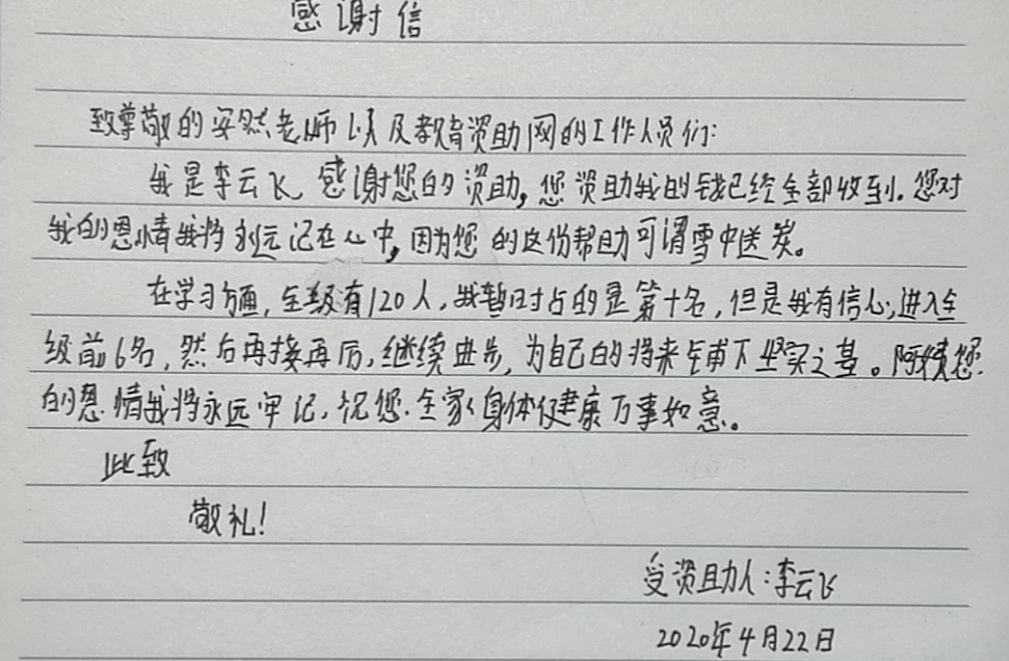 感谢信
致尊敬的安然老师以及教育资助网的工作人员们:
我是李云飞,感谢您的资助,您资助我的钱已经全部收到。您对
我的恩情我将永远记在心中,因为您的这份帮助可谓雪中送炭。
在学习方面,全级有120人,我暂时占的是第十名,但是我有信心进入全
级前6名,然后再接再厉,继续进步,为自己的将来铺下坚实之基。阿姨您
的恩情我将永远牢记,祝您全家身体健康万事如意。
此致
敬礼!
受资助人:李云飞
2020年4月22日